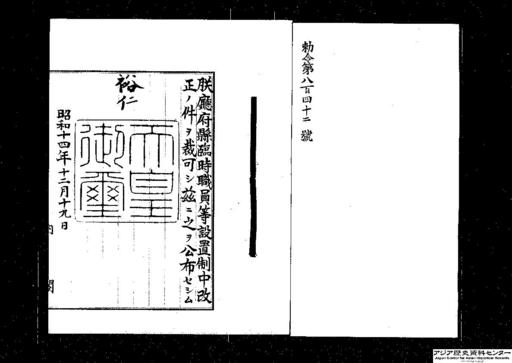 勅令第八百四十二號
朕廳府縣臨時職員等設置制中改
正ノ件ヲ裁可シ茲ニ之ヲ公布セシム
裕仁
天皇
御璽
昭和十四年十二月十九日
内閣
アジア歴史資料センター
Japan Center for Asian Historical Records